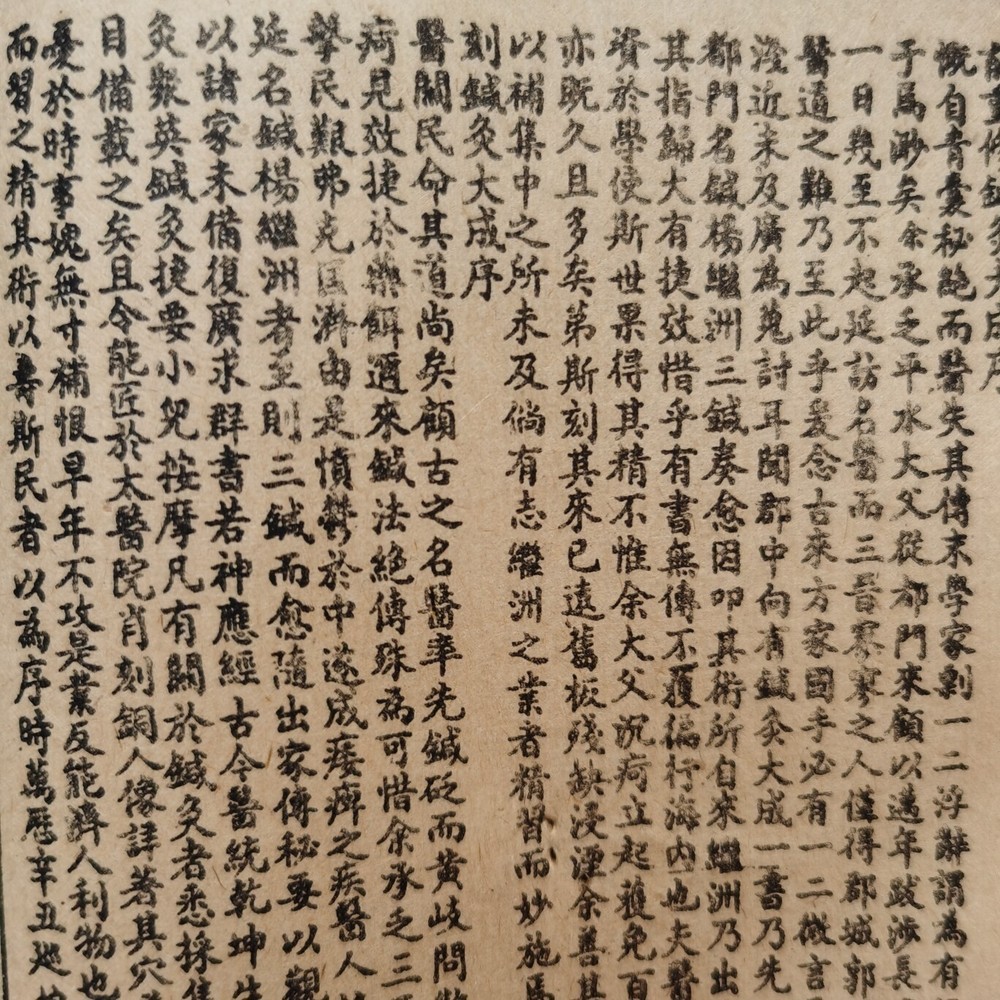 重修鍼灸大成序
慨自青囊秘絶而醫失其傳末學家剽一二浮辭謂為有
于焉渺矣余承乏平水大父從都門來顧以邁年跋涉長
一日幾至不起延訪名醫而三晉寥寥之人僅得郡城郭
醫道之難乃至此乎爰念古來方家固手必有一二微言
淺近未及廣為蒐討耳聞郡中向有鍼灸大成一書乃先
都門名鍼楊繼洲三鍼奏愈因叩其術所自來繼洲乃出
其指歸大有捷效惜乎有書無傳不獲徧行海内也夫醫
資於學使斯世果得其精不惟余大父沉疴立起獲免百
亦既久且多矣第斯刻其來已遠舊板殘缺浸湮余善其
以補集中之所未及倘有志繼洲之業者精習而妙施焉
刻鍼灸大成序
醫關民命其道尚矣顧古之名醫率先鍼砭而黃岐問
疴見效捷於藥餌邇來鍼法絶傳殊為可惜余承乏三
擊民艱弗克匡濟由是憤鬱於中遂成痿痺之疾醫人
延名鍼楊繼洲者至則三鍼而愈隨出家傳秘要以觀
以諸家未備復廣求群書若神應經古今醫統乾坤生
灸聚英鍼灸捷要小兒按摩凡有關於鍼灸者悉採集
目備載之矣且令能匠於太醫院肖刻銅人像詳著其穴
憂於時事媿無寸補恨早年不攻是業反能濟人利物也
而習之精其術以壽斯民者以為序時萬曆辛丑廵